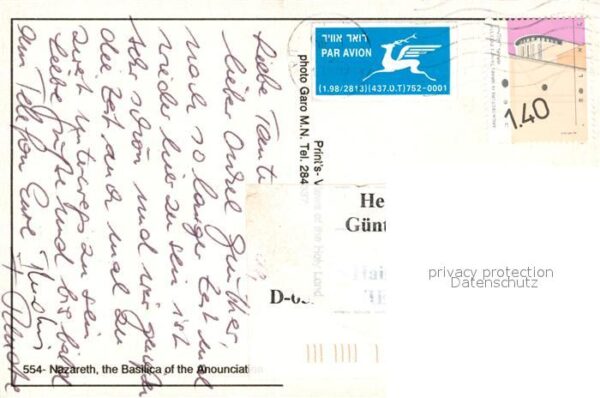 Liebe Tante
liebe Onkel Günther,
nach so langer Zeit mal
wieder hier zu sein ist
sehr schön und wir genießen
die Zeit auch mal zu
zweit unterwegs zu sein
Liebe Grüße und bis bald
am Telefon Eure
דואר אוויר
PAR AVION
(1.98/2813)(437.D.T)752-0001
1.40
Print's- V of the Holy Land
photo Garo M.N. Tel. 284
He
Günt
Hai
D-63
privacy protection
Datenschutz
554- Nazareth, the Basilica of the Anounciatio